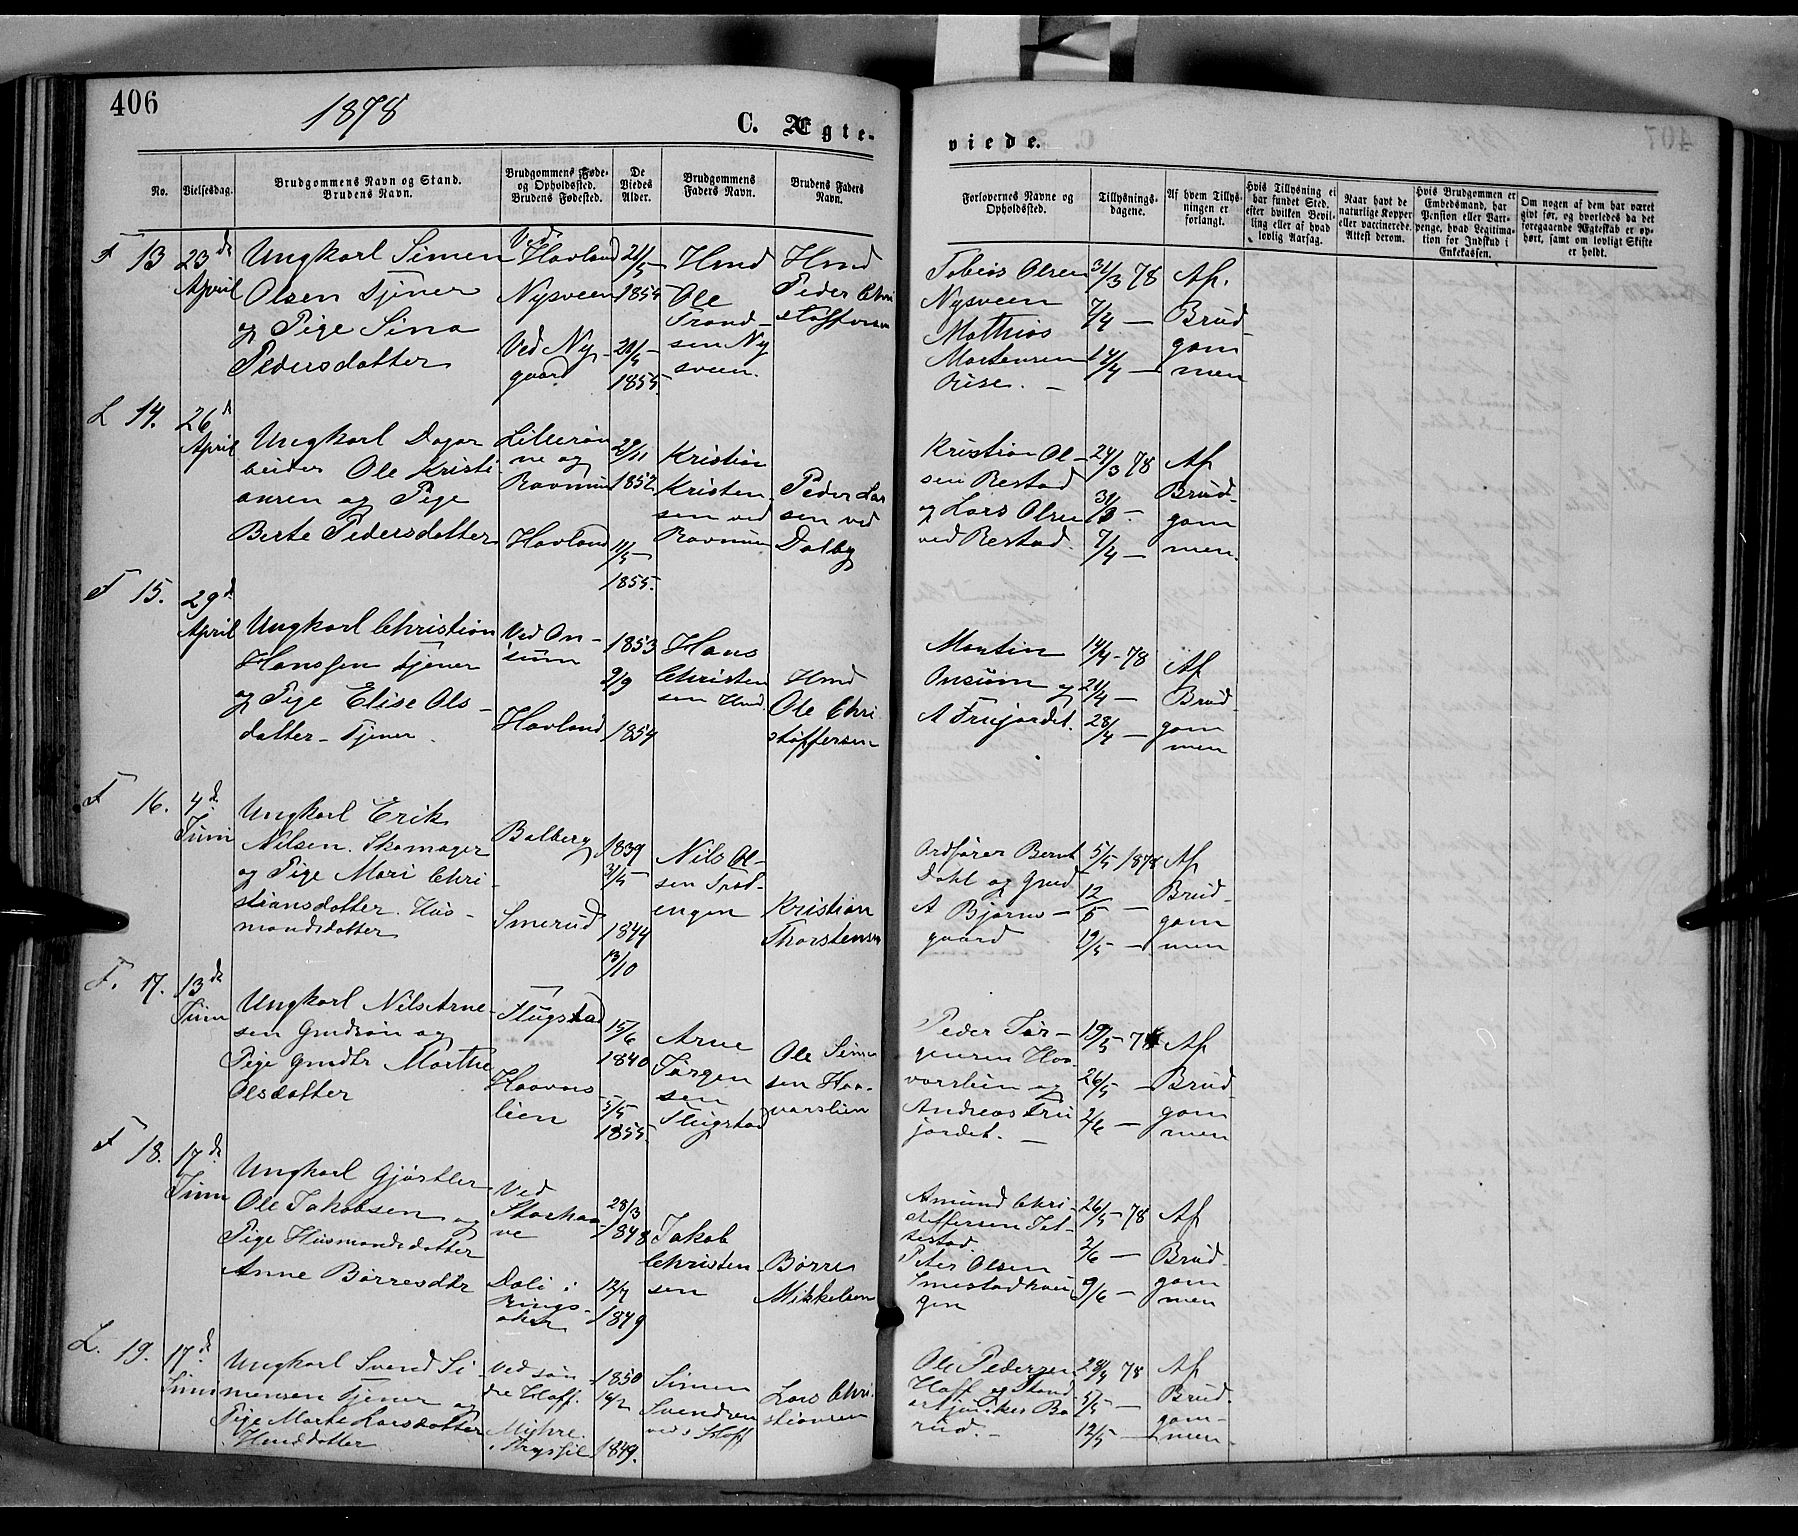 406
1878
C. Ægte-
viede.
No.
Vielsesdag.
Brudgommens Navn og Stand.
Brudens Navn.
Brudgommens Føde-
og Opholdssted.
Brudens Fødested.
De
Viedes
Alder.
Brudgommens
Faders Navn.
Brudens Faders
Navn.
Forlovernes Navne og
Opholdssted.
Tillysnings-
dagene.
Af hvem Tillys-
ningen er
forlangt.
Hvis Tillysning ei
har fundet Sted,
efter hvilken Bevil-
ling eller af hvad
lovlig Aarsag.
Naar havt de
naturlige Kopper
eller vaccinerede.
Attest derom.
Hvis Brudgommen er
Embedsmand, har
Pension eller Vart-
penge, hvad Legitima-
tion for Indskud i
Enkekassen.
Om nogen af dem har været
givt før, og hvorledes da det
foregaaende Ægteskab er op-
hørt, samt om lovligt Skifte
er holdt.
F 13 23de April
Ungkarl Simen
Olsen Tjener
og Pige Sina
Pedersdatter
Ved
Hovland
Nysveen
Ved Ny-
gaard
21/5
1854
21/4
1855
Hmd
Ole
Trond-
sen Ny
sveen.
Hmd
Peder Chri
stoffersen
Tobias Olsen
Nysveen
Mathias
Mortensen
Riise. –
31/3 78
7/4 –
14/4 –
Af
Brud-
gom
men
L 14. 26d April
Ungkarl Dagar
beider Ole Kristi
ansen og Pige
Berte Pedersdatter
Lillerøn
ne og
Ravnum
Hovland
29/11
1852
11/5
1855.
Kristian
Kristen-
sen ved
Ravnum
Peder Lar
sen ved
Dalby
Kristian Ol-
sen Restad
og Lars Olsen
ved Restad.
24/3 78
31/3 -
7/4 –
Af
Brud-
gom
men.
F 15. 29d April
Ungkarl Christian
Hanssen Tjener
og Pige Elise Ols-
datter – Tjener.
Ved On-
sum
Hovland
1853
2/9
1854
Hans
Christen
sen Hmd
Hmd
Ole Chri
stoffersen
Martin
Onsum og
A Frujordet.
14/4 - 78
21/4 –
28/4 –
Af
Brud-
gom
men
F 16. 4d Juni
Ungkarl Erik
Nilsen. Skomager
og Pige Mari Chri-
stiansdatter. Hus-
mandsdatter
Balberg
Smerud
1839
31/5
1844
13/10
Nils Ol-
sen Trød-
engen
Kristian
Thorstensen
Ordfører Bernt
Dahl og Gmd
A Bjørns-
gaard
5/5 1878
12/5 –
19/5 –
Af
Brud-
gom
men
F. 17. 13de Juni
Ungkarl Nils Arne-
sen Gmdsøn og
Pige Gmdtr Marthe
Olsdatter
Flugstad
Haavars
lien
15/6
1840
5/5
1855.
Arne
Jørgen
sen
Flugstad
Ole Simen
sen Haa-
varslien
Peder Jør-
gensen Haa
varslien og
Andreas Fru
jordet. –
19/5 - 78
26/5 –
2/6 –
Af
Brud-
gom
men
F 18. 17de Juni
Ungkarl Gjørtler
Ole Jakobsen og
Pige Husmandsdatter
Anne Børresdtr
Ved
Storhaa-
ve
Dæli i
Rings-
aker
28/3
1848
12/7
1849
Jakob
Christen-
sen
Børre
Mikkelsen
Amund Chri-
stoffersen Jet-
sestad.
Peter Olsen
Smestadhau-
gen
26/5 - 78
2/6 –
9/6 –
Af
Brud-
gom
men
L. 19. 17de Juni
Ungkarl Svend Si-
mensen Tjener og
Pige Marte Larsdatter
Hmddatter
Ved søn-
dre Hoff.
Myhre
i Trysfil
1850
14/2
1849.
Simen
Svendsen
ved s Hoff
Lars Chri-
stiansen
Ole Pedersen
Hoff og
28/4 78
5/5 –
12/5 –
Af
Brud-
gom-
men-